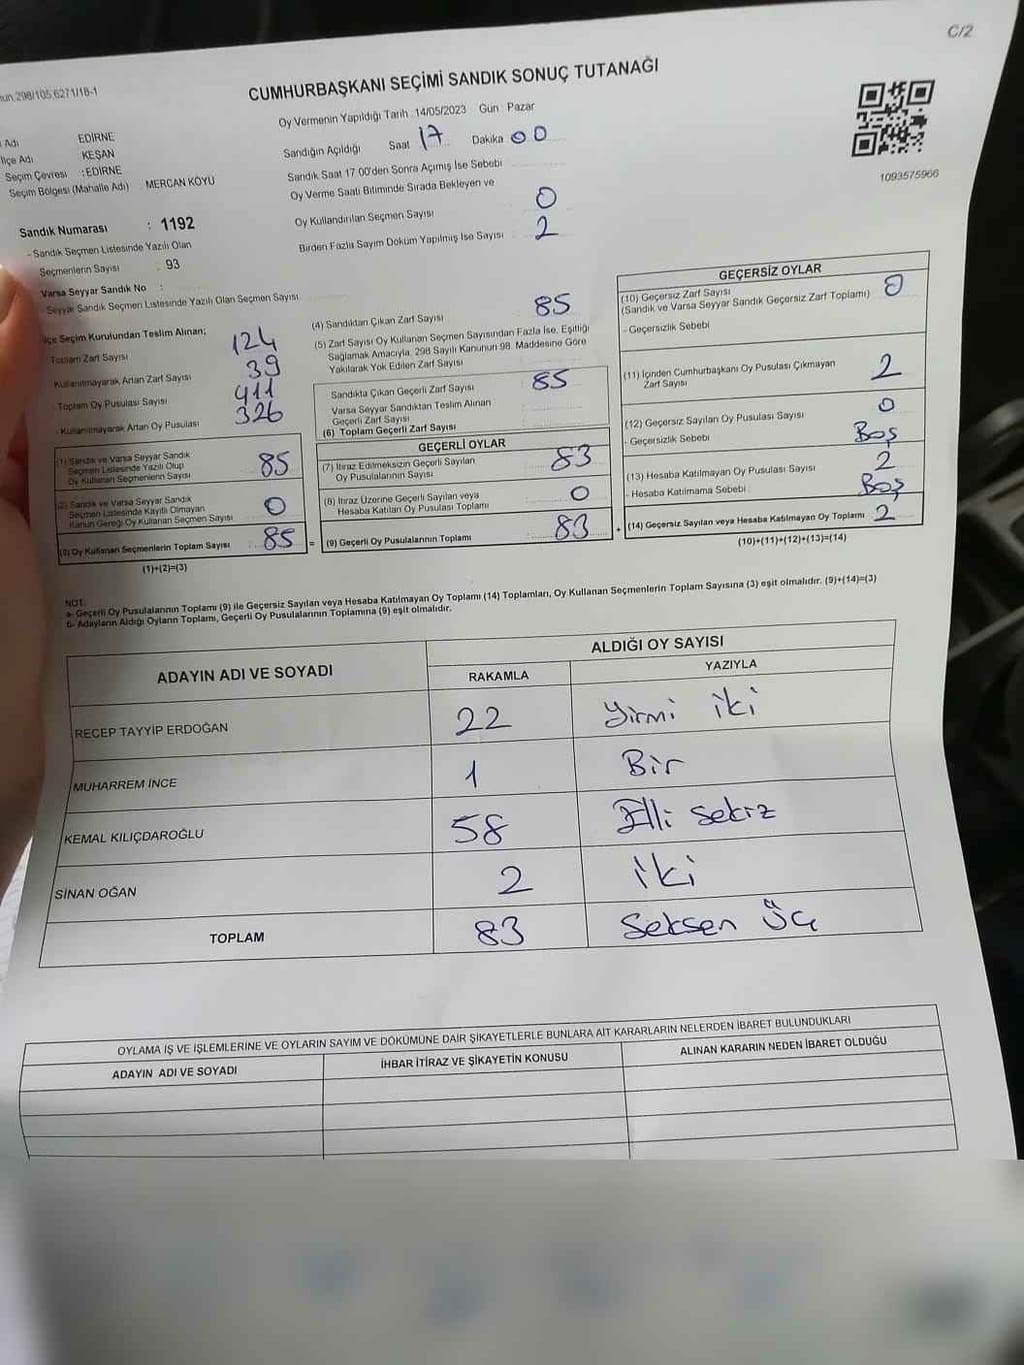 C/2
298/105,6271/18-1
CUMHURBAŞKANI SEÇİMİ SANDIK SONUÇ TUTANAĞI
Oy Vermenin Yapıldığı Tarih 14/05/2023 Gün Pazar
Adı EDİRNE
İlçe Adı KEŞAN
Seçim Çevresi : EDİRNE
Seçim Bölgesi (Mahalle Adı) MERCAN KÖYÜ
Sandığın Açıldığı Saat 17 Dakika 00
Sandık Saat 17 00'den Sonra Açımış İse Sebebi
Oy Verme Saati Bitiminde Sırada Bekleyen ve
Oy Kullandırılan Seçmen Sayısı 0
Birden Fazla Sayım Döküm Yapılmış İse Sayısı 2
1093575966
Sandık Numarası : 1192
- Sandık Seçmen Listesinde Yazılı Olan
Seçmenlerin Sayısı : 93
Varsa Seyyar Sandık No :
- Seyyar Sandık Seçmen Listesinde Yazılı Olan Seçmen Sayısı
İlçe Seçim Kurulundan Teslim Alınan;
- Toplam Zarf Sayısı 124
- Kullanılmayarak Artan Zarf Sayısı 39
- Toplam Oy Pusulası Sayısı 411
- Kullanılmayarak Artan Oy Pusulası 326
(1) Sandık ve Varsa Seyyar Sandık
Seçmen Listesinde Yazılı Olup
Oy Kullanan Seçmenlerin Sayısı 85
(2) Sandık ve Varsa Seyyar Sandık
Seçmen Listesinde Kayıtlı Olmayan
Kanun Gereği Oy Kullanan Seçmen Sayısı 0
(3) Oy Kullanan Seçmenlerin Toplam Sayısı 85 =
(1)+(2)=(3)
(4) Sandıktan Çıkan Zarf Sayısı 85
(5) Zarf Sayısı Oy Kullanan Seçmen Sayısından Fazla İse, Eşitliği
Sağlamak Amacıyla, 298 Sayılı Kanunun 98. Maddesine Göre
Yakılarak Yok Edilen Zarf Sayısı
Sandıkta Çıkan Geçerli Zarf Sayısı 85
Varsa Seyyar Sandıktan Teslim Alınan
Geçerli Zarf Sayısı
(6) Toplam Geçerli Zarf Sayısı
GEÇERLİ OYLAR
(7) İtiraz Edilmeksizin Geçerli Sayılan
Oy Pusulalarının Sayısı 83
(8) İtiraz Üzerine Geçerli Sayılan veya
Hesaba Katılan Oy Pusulası Toplamı 0
(9) Geçerli Oy Pusulalarının Toplamı 83 +
GEÇERSİZ OYLAR
(10) Geçersiz Zarf Sayısı
(Sandık ve Varsa Seyyar Sandık Geçersiz Zarf Toplamı) 0
- Geçersizlik Sebebi
(11) İçinden Cumhurbaşkanı Oy Pusulası Çıkmayan
Zarf Sayısı 2
(12) Geçersiz Sayılan Oy Pusulası Sayısı 0
- Geçersizlik Sebebi Boş
(13) Hesaba Katılmayan Oy Pusulası Sayısı 2
- Hesaba Katılmama Sebebi : Boş
(14) Geçersiz Sayılan veya Hesaba Katılmayan Oy Toplamı 2
(10)+(11)+(12)+(13)=(14)
NOT:
a- Geçerli Oy Pusulalarının Toplamı (9) ile Geçersiz Sayılan veya Hesaba Katılmayan Oy Toplamı (14) Toplamları, Oy Kullanan Seçmenlerin Toplam Sayısına (3) eşit olmalıdır. (9)+(14)=(3)
b- Adayların Aldığı Oyların Toplamı, Geçerli Oy Pusulalarının Toplamına (9) eşit olmalıdır.
ADAYIN ADI VE SOYADI
ALDIĞI OY SAYISI
RAKAMLA YAZIYLA
RECEP TAYYİP ERDOĞAN 22 Yirmi iki
MUHARREM İNCE 1 Bir
KEMAL KILIÇDAROĞLU 58 Elli sekiz
SİNAN OĞAN 2 iki
TOPLAM 83 Seksen Üç
OYLAMA İŞ VE İŞLEMLERİNE VE OYLARIN SAYIM VE DÖKÜMÜNE DAİR ŞİKAYETLERLE BUNLARA AİT KARARLARIN NELERDEN İBARET BULUNDUKLARI
ADAYIN ADI VE SOYADI İHBAR İTİRAZ VE ŞİKAYETİN KONUSU ALINAN KARARIN NEDEN İBARET OLDUĞU